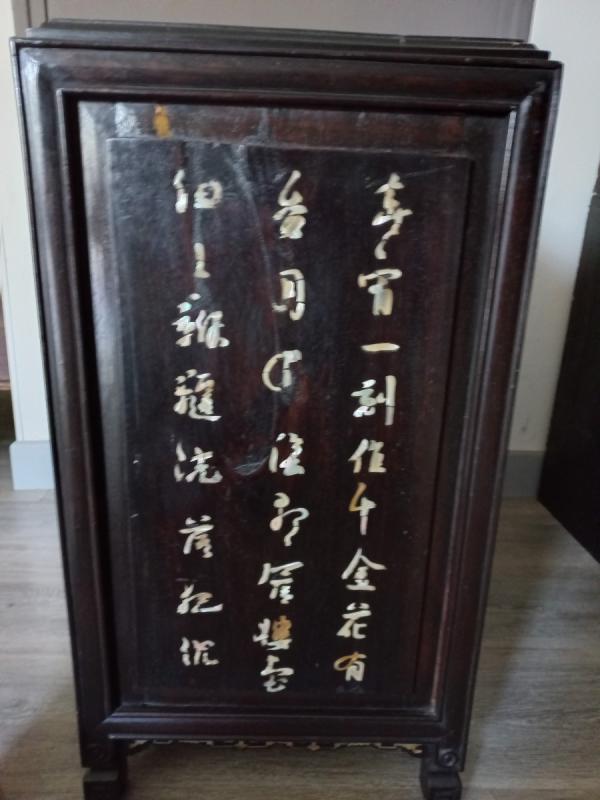 春宵一刻值千金花有
香月陰歌管樓臺
細々鞦韆院落